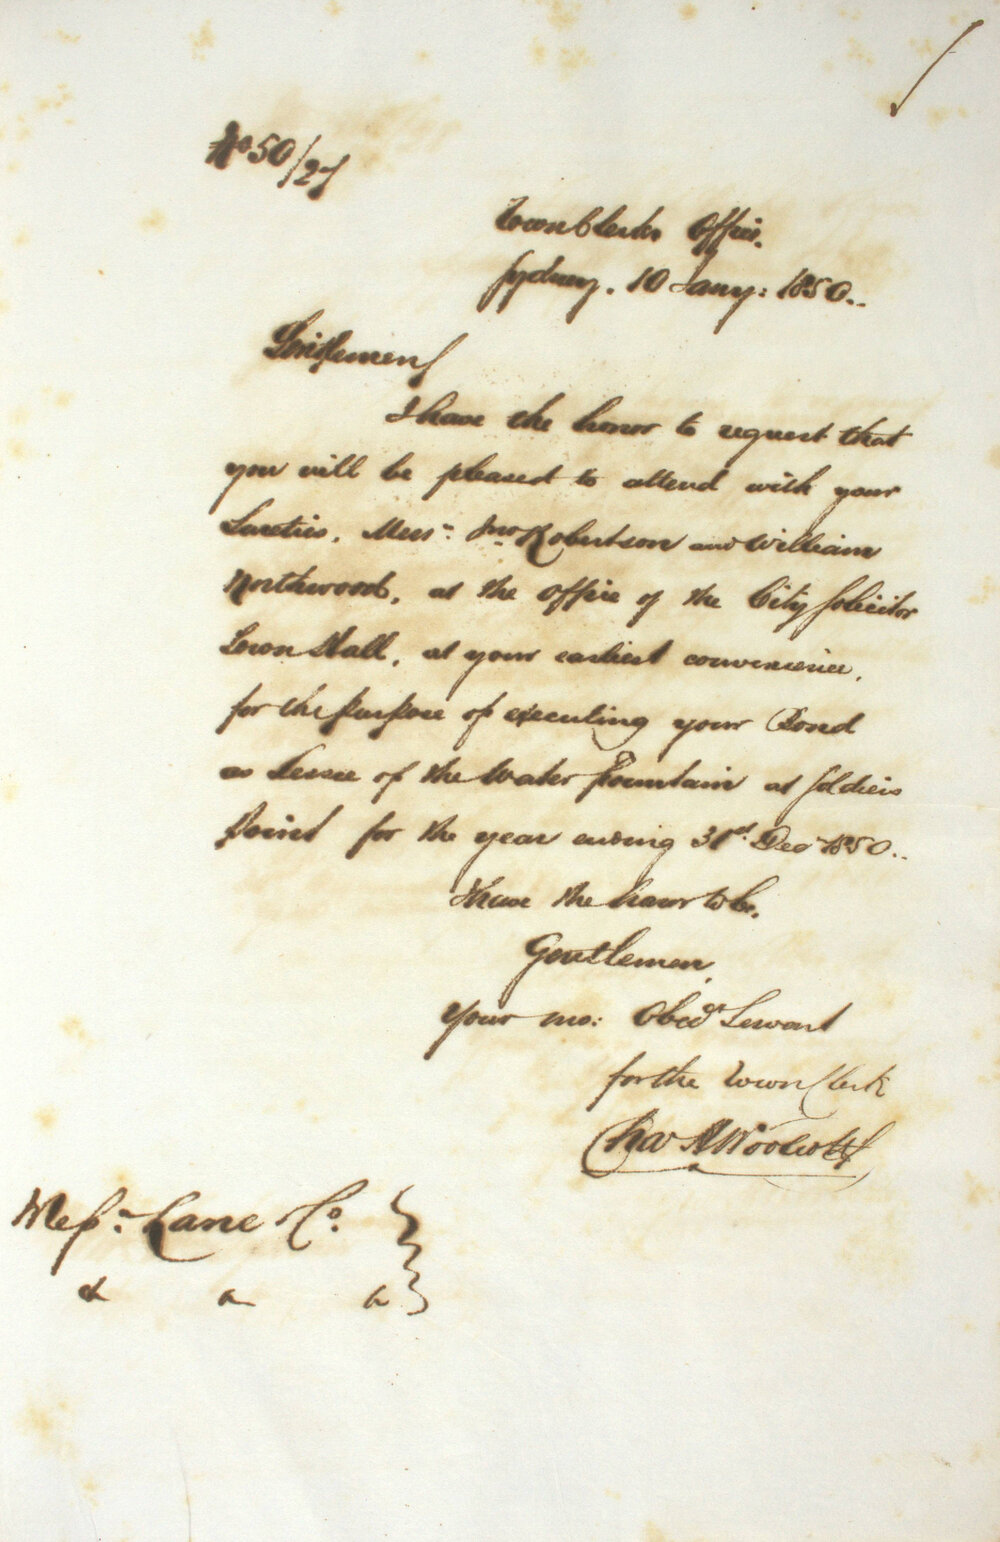 No 50/27
Town Clerks Office.
Sydney. 10 Jany: 1850..
Gentlemen
I have the honor to request that
you will be pleased to attend with your
Sureties, Messrs: Jno Robertson and William
Northwood, at the Office of the City Solicitor
Town Hall, at your earliest convenience,
for the purpose of executing your Bond
as Lessee of the Water Fountain at Soldiers
Point for the year ending 31st. Decr 1850..
I have the honor to be,
Gentlemen,
Your mo: Obedt Servant
for the Town Clerk
Chas H Woolcott
Messrs: Lane & Co.
& & &